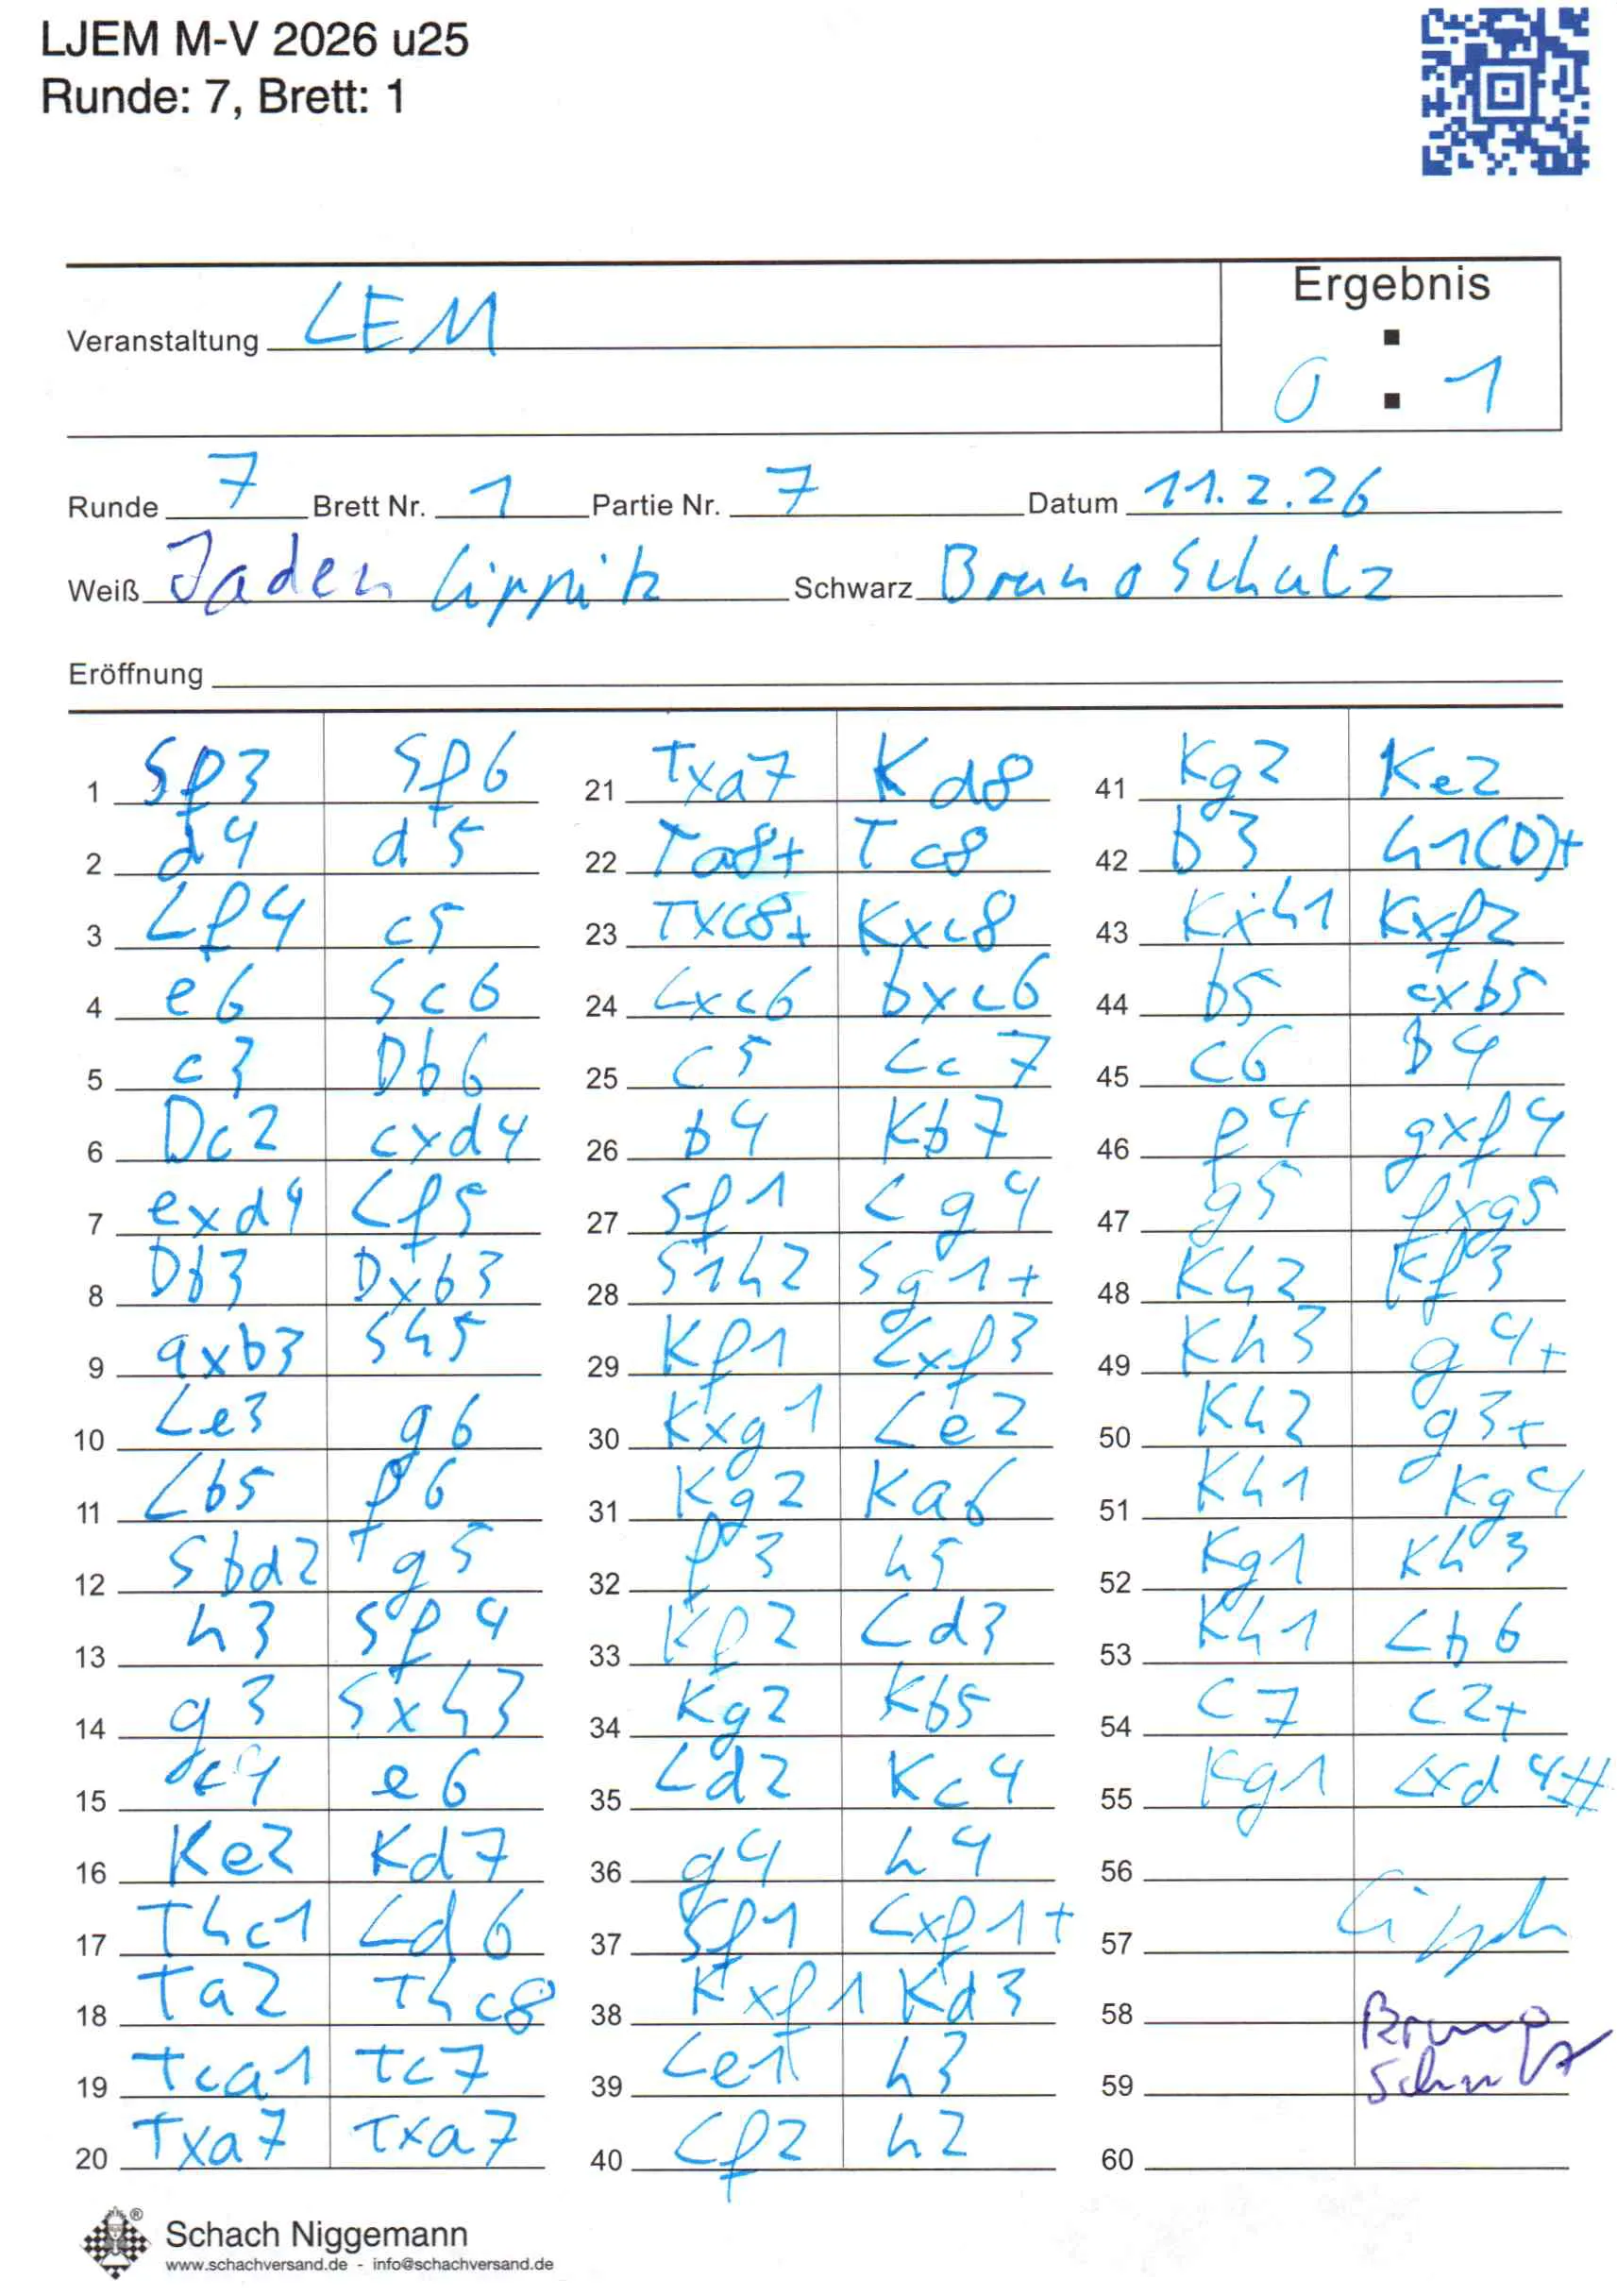 LJEM M-V 2026 u25
Runde: 7, Brett: 1
Veranstaltung LEM
Ergebnis
:
0 : 1
Runde 7 Brett Nr. 1 Partie Nr. 7 Datum 11.2.26
Weiß Jaden Lippitz Schwarz Bruno Schulz
Eröffnung
1 Sf3 Sf6
2 d4 d5
3 Lf4 c5
4 e6 Sc6
5 c3 Db6
6 Dc2 cxd4
7 exd4 Lf5
8 Db3 Dxb3
9 axb3 Sh5
10 Le3 g6
11 Lb5 f6
12 Sbd2 g5
13 h3 Sf4
14 g3 Sxh3
15 c4 e6
16 Ke2 Kd7
17 Thc1 Ld6
18 Ta2 Thc8
19 Tca1 Tc7
20 Txa7 Txa7
21 Txa7 Kd8
22 Ta8+ Tc8
23 Txc8+ Kxc8
24 Lxc6 bxc6
25 c5 Lc7
26 b4 Kb7
27 Sf1 Lg4
28 S1h2 Sg1+
29 Kf1 Lxf3
30 Kxg1 Le2
31 Kg2 Ka6
32 f3 h5
33 Kf2 Ld3
34 Kg2 Kb5
35 Ld2 Kc4
36 g4 h4
37 Sf1 Lxf1+
38 Kxf1 Kd3
39 Le1 h3
40 Lf2 h2
41 Kg2 Ke2
42 b3 h1(D)+
43 Kxh1 Kxf2
44 b5 cxb5
45 c6 b4
46 f4 gxf4
47 g5 fxg5
48 Kh2 Kf3
49 Kh3 g4+
50 Kh2 g3+
51 Kh1 Kg4
52 Kg1 Kh3
53 Kh1 Lb6
54 c7 c2+
55 Kg1 Lxd4#
56
57 Lipph
58 Bruno
59 Schulz
60
Schach Niggemann
www.schachversand.de - info@schachversand.de